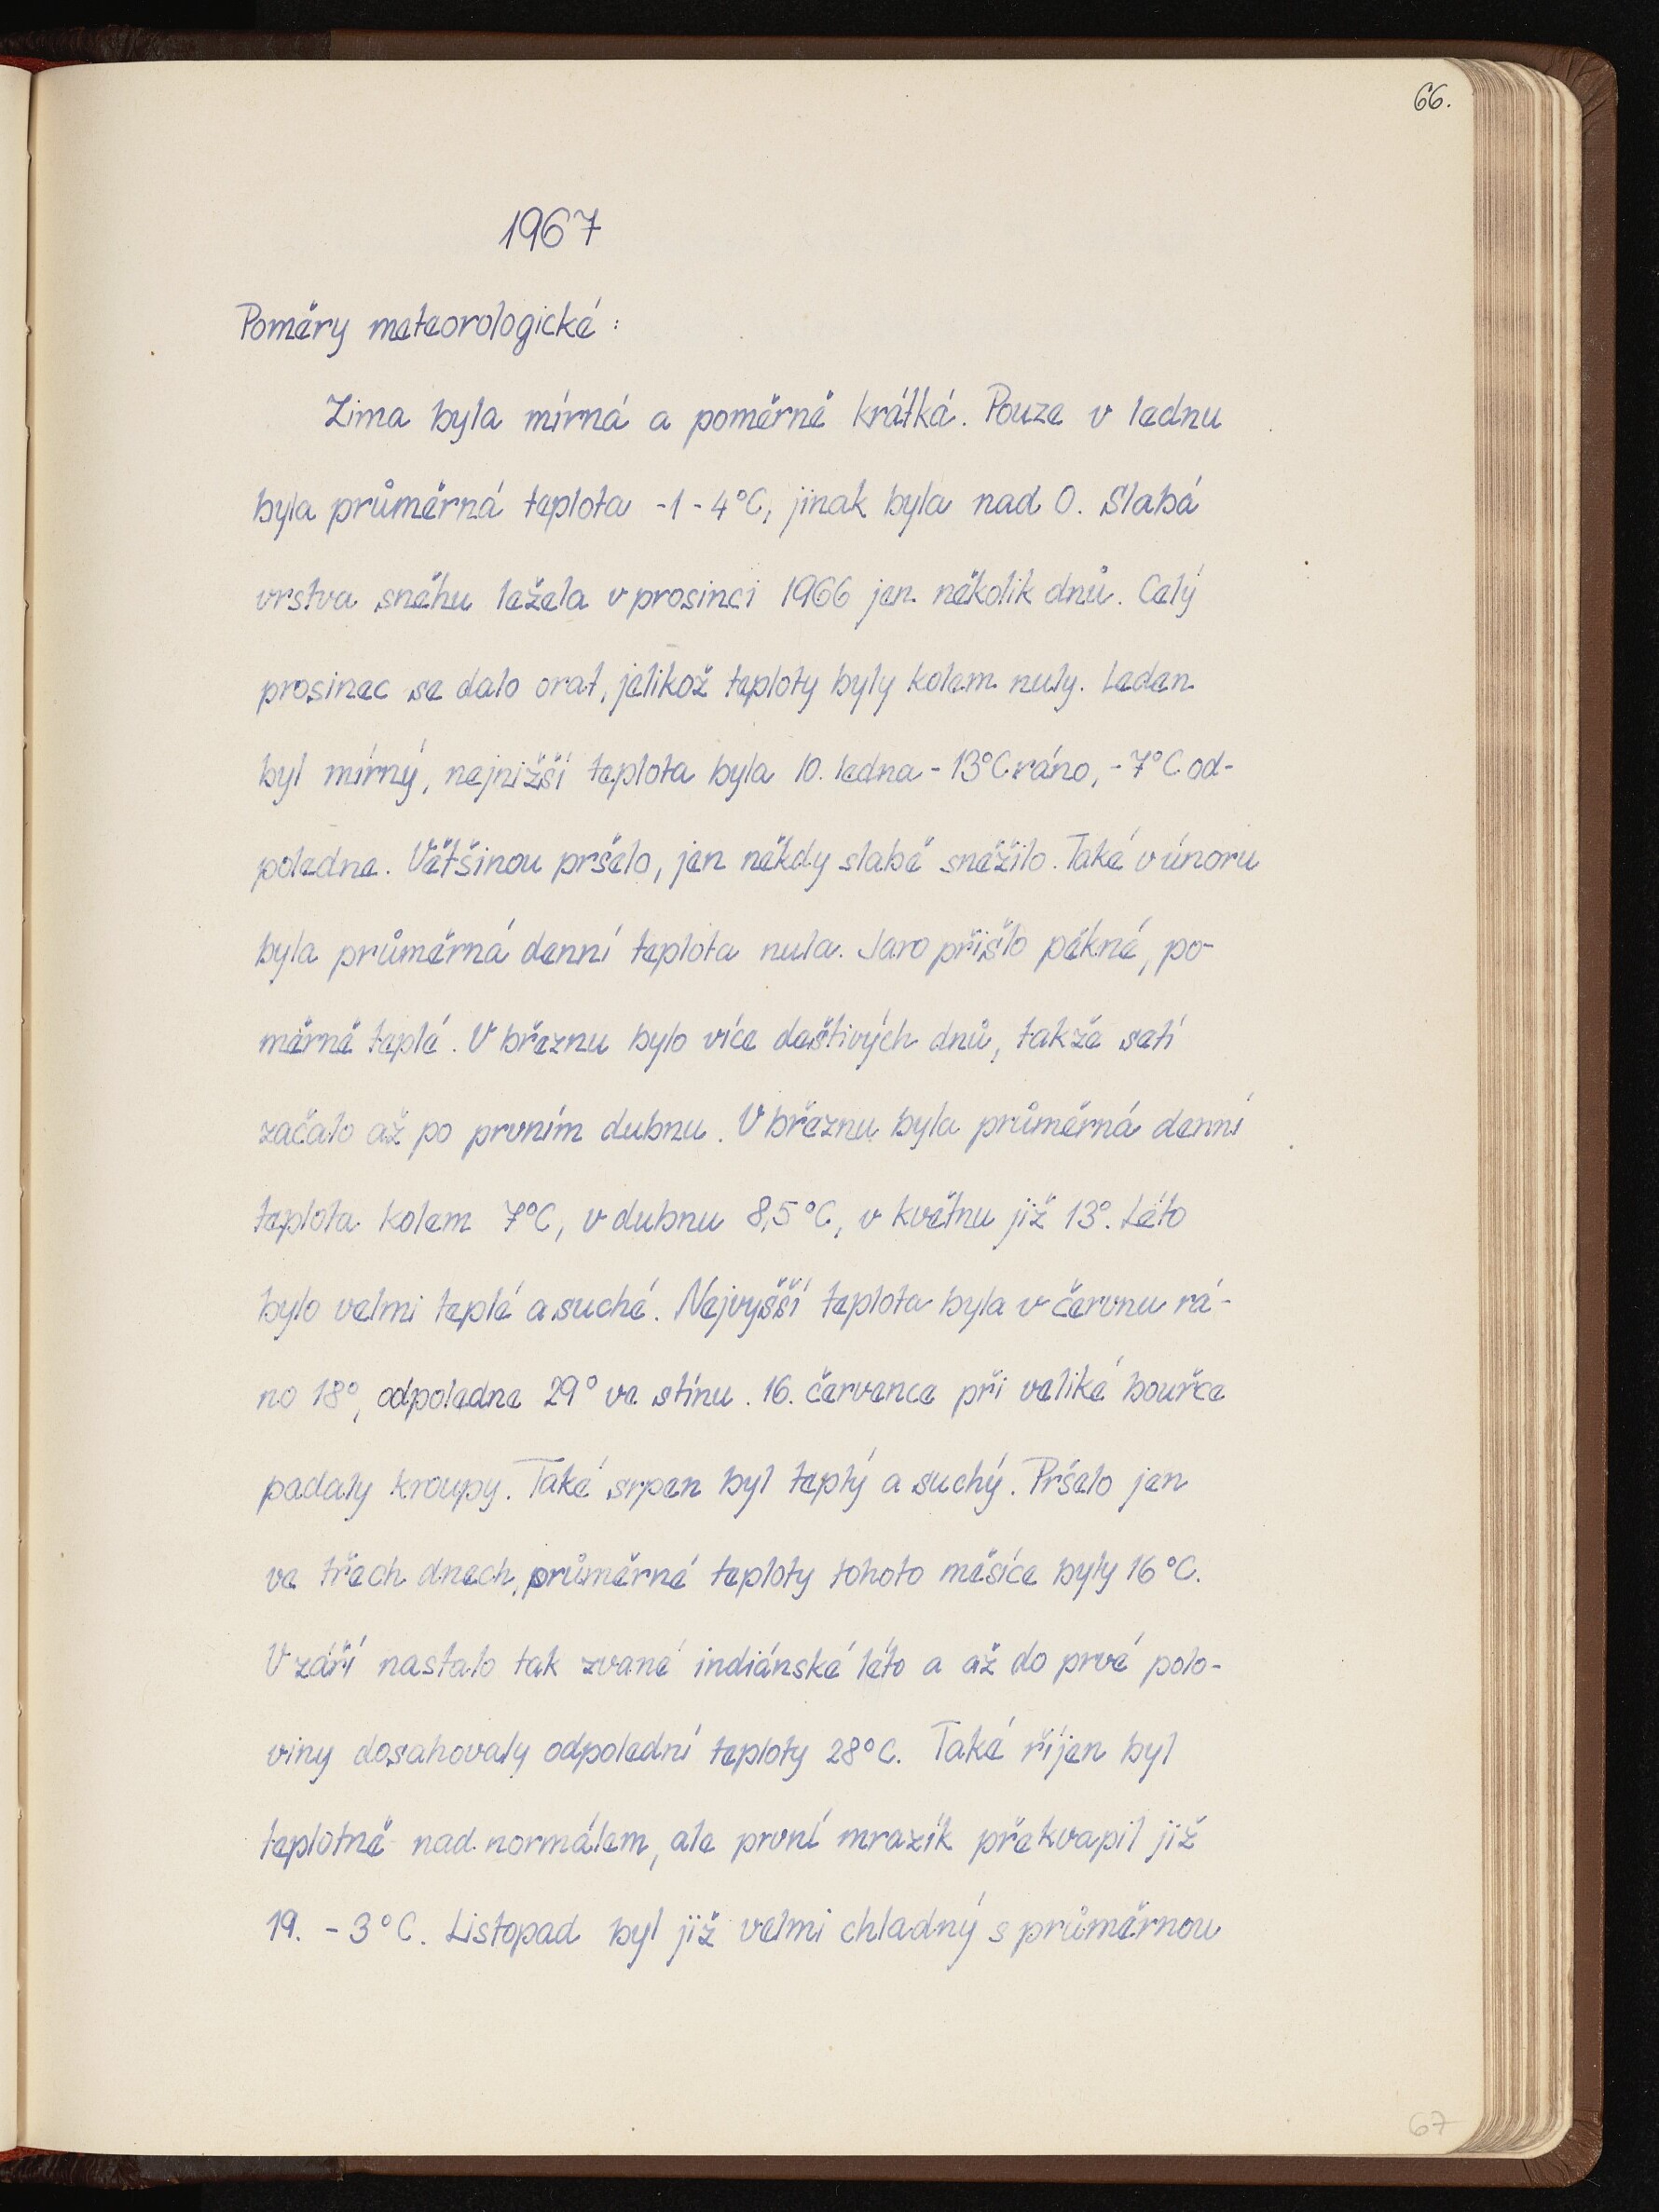 66.
1967
Poměry meteorologické :
Zima byla mírná a poměrně krátká. Pouze v lednu
byla průměrná teplota -1 - 4°C, jinak byla nad 0. Slabá
vrstva sněhu ležela v prosinci 1966 jen několik dnů. Celý
prosinec se dalo orat, jelikož teploty byly kolem nuly. Leden
byl mírný, nejnižší teplota byla 10. ledna - 13°C ráno, - 7°C od-
poledne. Většinou pršelo, jen někdy slabě sněžilo. Také v únoru
byla průměrná denní teplota nula. Jaro přišlo pěkné, po-
měrně teplé. V březnu bylo více deštivých dnů, takže setí
začalo až po prvním dubnu. V březnu byla průměrná denní
teplota kolem 7°C, v dubnu 8,5°C, v květnu již 13°. Léto
bylo velmi teplé a suché. Nejvyšší teplota byla v červnu rá-
no 18°, odpoledne 29° ve stínu. 16. července při veliké bouřce
padaly kroupy. Také srpen byl teplý a suchý. Pršelo jen
ve třech dnech, průměrné teploty tohoto měsíce byly 16°C.
V září nastalo tak zvané indiánské léto a až do prvé polo-
viny dosahovaly odpolední teploty 28°C. Také říjen byl
teplotně nad normálem, ale první mrazík překvapil již
19. - 3°C. Listopad byl již velmi chladný s průměrnou
67